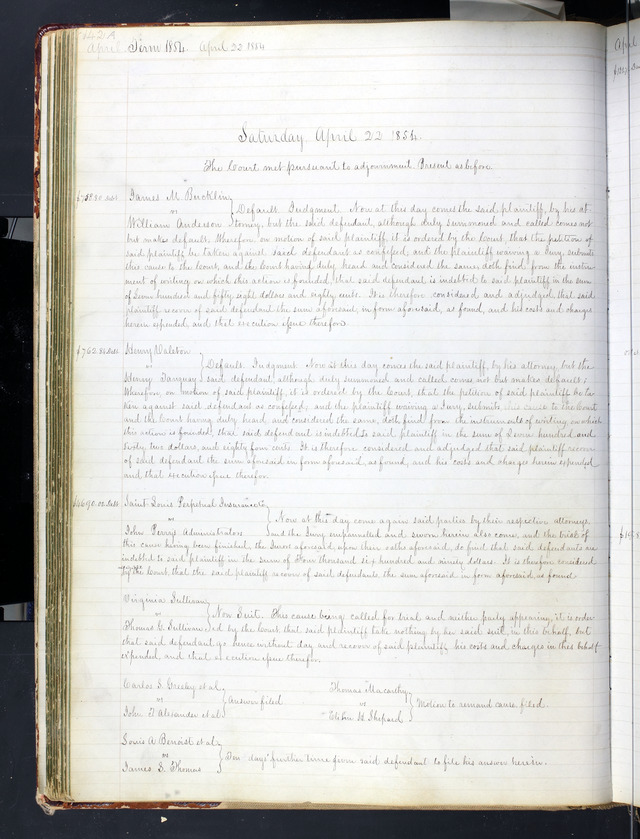 142 A
April Term 1854 April 22 1854
Saturday April 22 1854.
The Court met pursuant to adjournment Present as before.
$758.80 debt James M. Bucklin
vs Default Judgment. Now at this day comes the said plaintiff, by his at-
William Anderson torney, but the said defendant, although duly summoned and called comes not
but makes default. Wherefore, on motion of said plaintiff, it is ordered by the Court, that the petition of
said plaintiff be taken against said defendant as confessed, and the plaintiff waiving a Jury, submits
this cause to the Court, and the Court having duly heard and considered the same, doth find, from the instru-
ment of writing on which this action is founded, that said defendant is indebted to said plaintiff in the sum
of Seven hundred and fifty eight dollars and eighty cents. It is therefore considered and adjudged, that said
plaintiff recover of said defendant the sum aforesaid, in form aforesaid, as found, and his costs and charges
herein expended, and that execution issue therefor.
$762.84 debt Henry Walston
vs Default Judgment Now at this day comes the said plaintiff, by his attorney, but the
Henry Tanguay said defendant, although duly summoned and called comes not but makes default;
Wherefore, on motion of said plaintiff, it is ordered by the Court, that the petition of said plaintiff be ta-
ken against said defendant as confessed; and the plaintiff waiving a Jury, submits this cause to the Court
and the Court having duly heard and considered the same, doth find, from the instruments of writing, on which
this action is founded, that said defendant is indebted to said plaintiff in the sum of Seven hundred and
sixty two dollars, and eighty four cents. It is therefore considered and adjudged that said plaintiff recover
of said defendant the sum aforesaid in form aforesaid, as found, and his costs and charges herein expended
and that execution issue therefor.
$4690.00 debt Saint Louis Perpetual Insurance Co
vs Now at this day come again said parties by their respective attorneys,
John Perrys Administrators and the Jury empannelled and sworn herein also come, and the trial of
this cause having been finished, the Jurors aforesaid, upon their oaths aforesaid, do find that said defendants are
indebted to said plaintiff in the sum of Four thousand six hundred and ninety dollars. It is therefore considered
by the Court, that the said plaintiff recover of said defendants the sum aforesaid in form aforesaid, as found
Virginia Sullivan
vs Non Suit. This cause being called for trial and neither party appearing, it is order-
Thomas C. Sullivan ed by the Court that said plaintiff take nothing by her said suit, in this behalf, but
that said defendant go hence without day and recover of said plaintiff, his costs and charges in this behalf
expended, and that execution issue therefor.
Carlos S. Greeley et al
vs Answer filed.
John T Alexander et al
Thomas Macarthy
vs Motion to remand cause filed.
Elihu H Shepard
Louis A Benoist et al
vs Ten days further time given said defendant to file his answer herein.
James S. Thomas